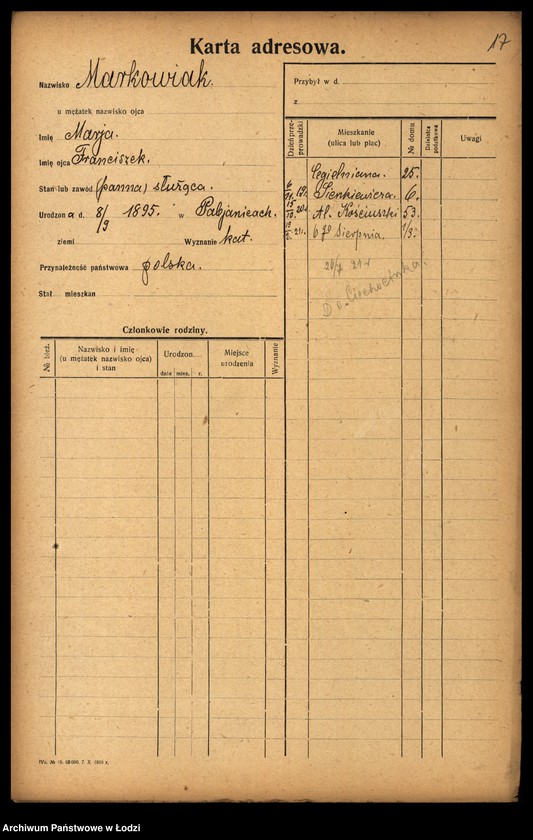 Karta adresowa.
17
Nazwisko Markowiak.
u mężatek nazwisko ojca
Imię Marja.
Imię ojca Franciszek.
Stan lub zawód (panna) służąca.
Urodzona d. 8/9 1895. w Pabjanicach.
ziemi Wyznanie kat.
Przynależność państwowa polska.
Stał. mieszkan
Przybył w d.
z
Dzień przeprowadzki
Mieszkanie
(ulica lub plac)
№ domu
Dzielnica podatkowa
Uwagi
Cegielniana. 25.
Sienkiewicza. 6.
Al. Kościuszki 53.
6go Sierpnia. 1/3.
Do Ciechocinka.
Członkowie rodziny.
№ bież.
Nazwisko i imię
(u mężatek nazwisko ojca)
i stan
Urodzon
data mies. r.
Miejsce
urodzenia
Wyznanie
Archiwum Państwowe w Łodzi